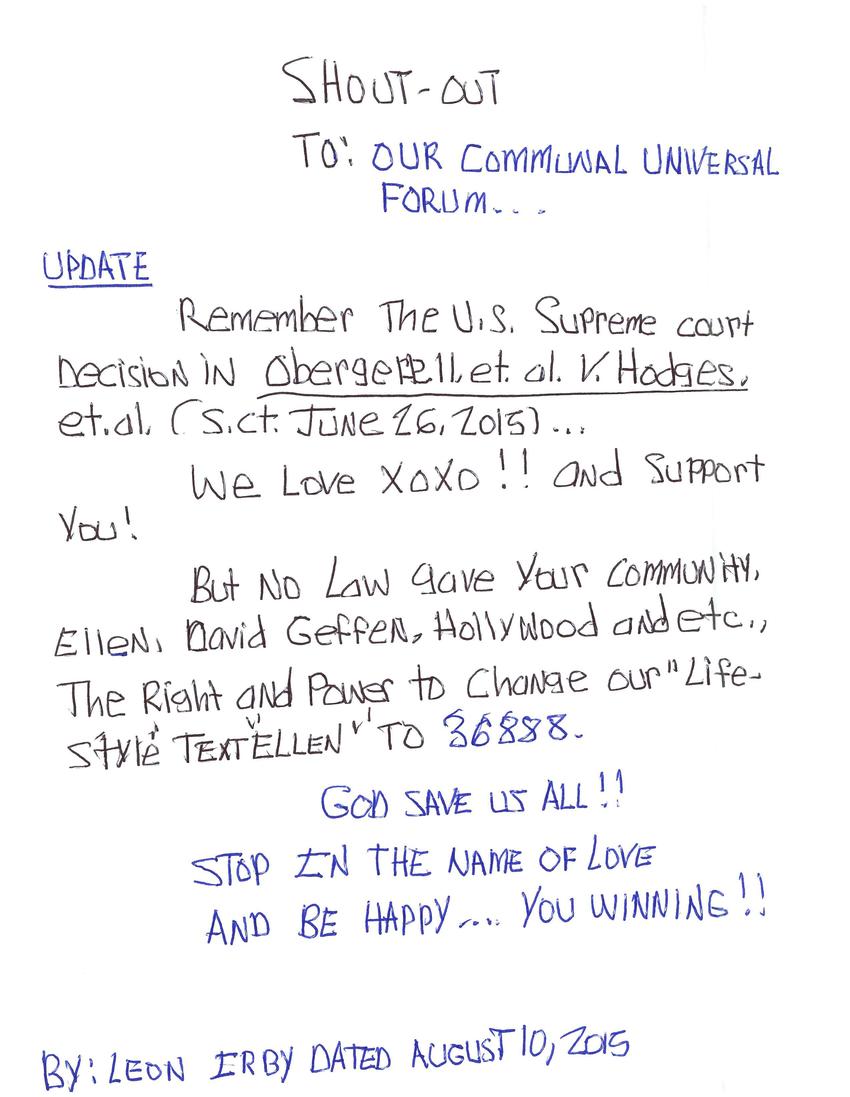 SHOUT-OUT
TO: OUR COMMUNAL UNIVERSAL
FORUM...
UPDATE
Remember The U.S. Supreme court
Decision IN Obergefell, et. al. V. Hodges,
et.al. (S.ct. JUNE 26, 2015)...
We Love XOXO!! and Support
You!
But No Law gave Your COMMUNITY,
ElleN, David GeffeN, Hollywood and etc.,
The Right and Power to Change our "Life-
Style" TEXT "ELLEN" TO 36888.
GOD SAVE US ALL!!
STOP IN THE NAME OF LOVE
AND BE HAPPY.... YOU WINNING!!
BY: LEON IRBY DATED AUGUST 10, 2015